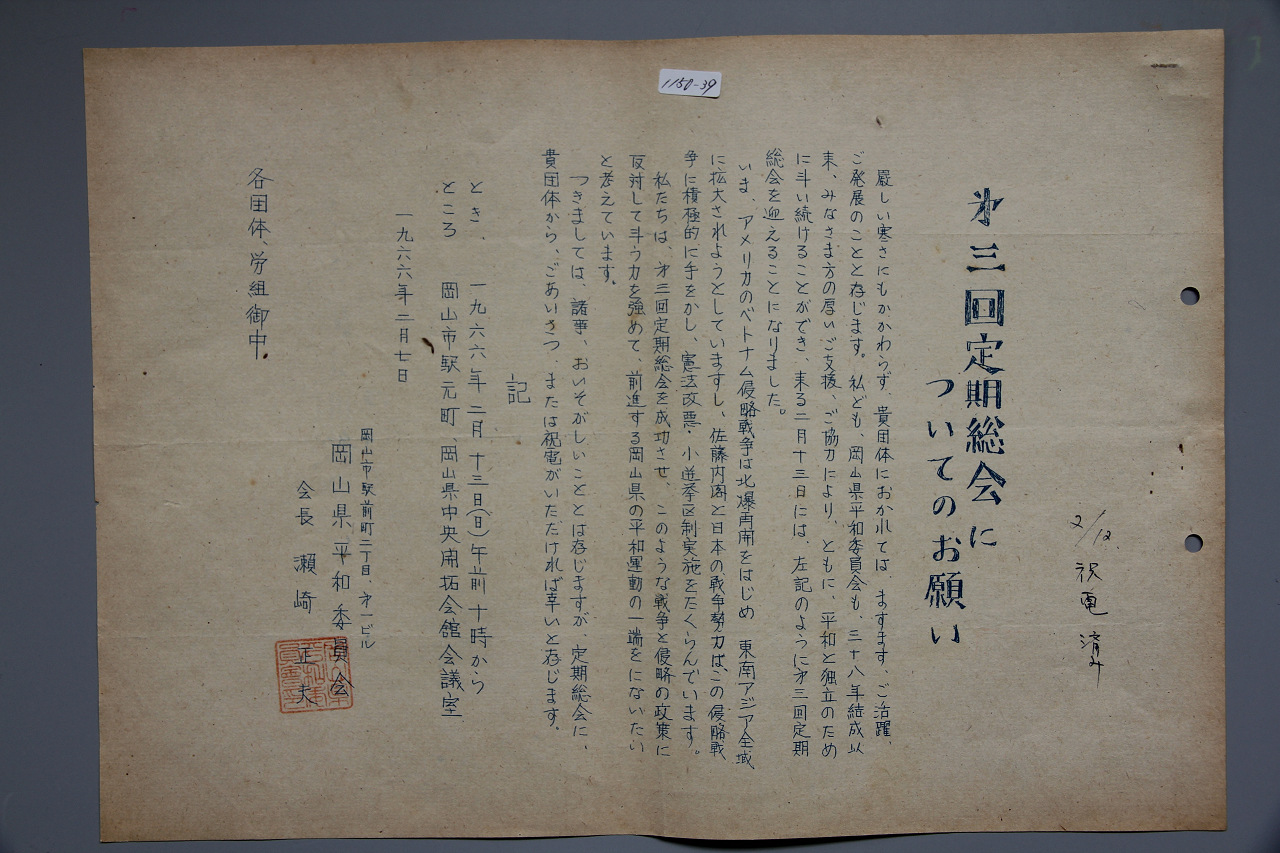 1150-39
2/12.
祝電済み
才三回定期総会に
ついてのお願い
厳しい寒さにもかかわらず、貴団体におかれては、ますます、ご活躍、
ご発展のことと存じます。私ども、岡山県平和委員会も、三十八年結成以
来、みなさま方の厚いご支援、ご協力により、ともに、平和と独立のため
に斗い続けることができ、来る二月十三日には、左記のように才三回定期
総会を迎えることになりました。
いま、アメリカのベトナム侵略戦争は北爆再開をはじめ 東南アジア全域
に拡大されようとしていますし、佐藤内閣と日本の戦争勢力は、この侵略戦
争に積極的に手をかし、憲法改悪・小選挙区制実施をたくらんでいます。
私たちは、才三回定期総会を成功させ、このような戦争と侵略の政策に
反対して斗う力を強めて、前進する岡山県の平和運動の一端をにないたい
と考えています。
つきましては、諸事、おいそがしいこととは存じますが、定期総会に、
貴団体から、ごあいさつ、または祝電がいただければ幸いと存じます。
記
とき、 一九六六年二月十三日(日)午前十時から
ところ 岡山市駅元町、岡山県中央開拓会館会議室
一九六六年二月七日
岡山市駅前町二丁目、才一ビル
岡山県平和委員会
会長 瀬崎 正夫
各団体、労組御中